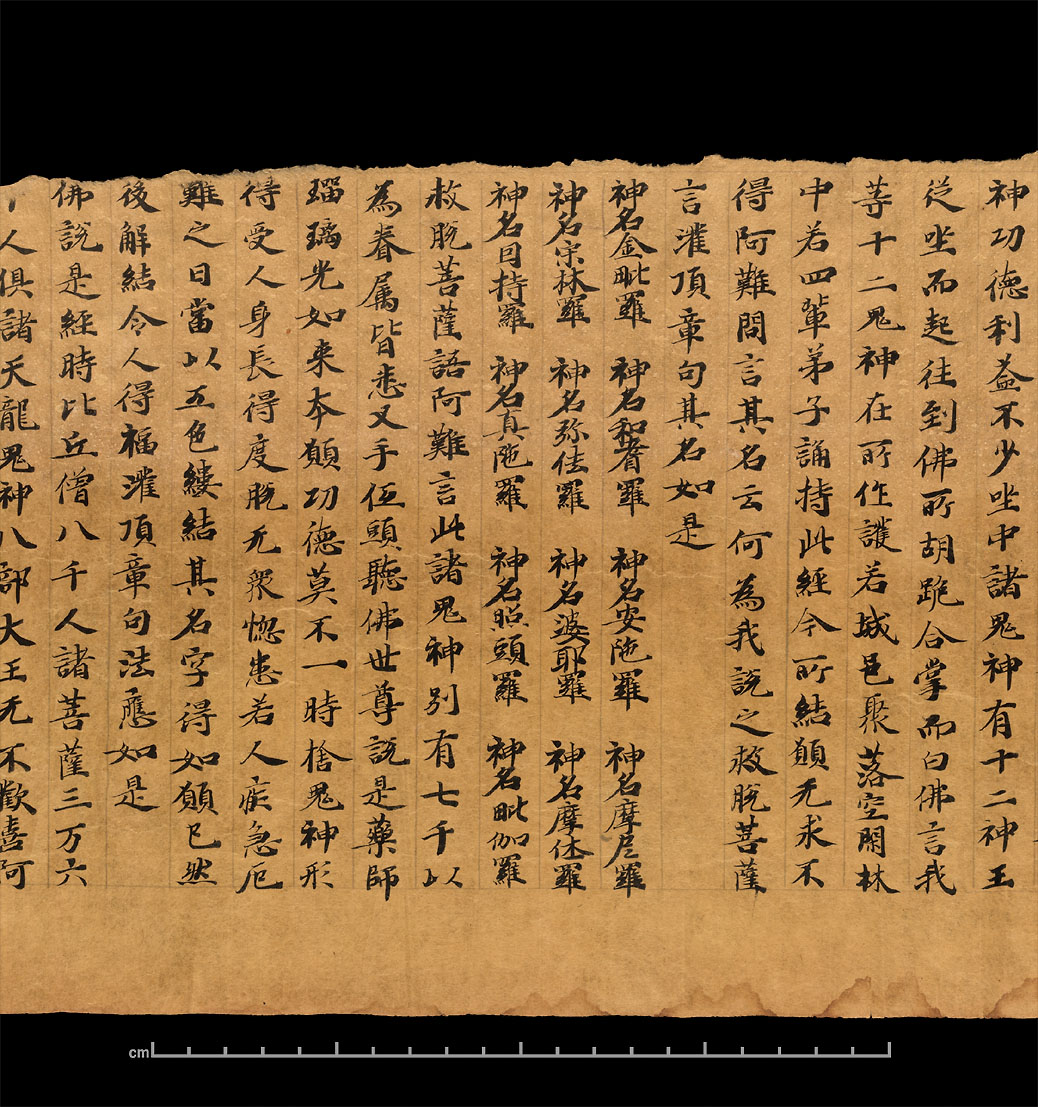 神功德利益不少坐中諸鬼神有十二神王
從坐而起往到佛所胡跪合掌而白佛言我
等十二鬼神在所作護若城邑聚落空閑林
中若四輩弟子誦持此經令所結願无求不
得阿難問言其名云何為我説之救脫菩薩
言灌頂章句其名如是
神名金毗羅 神名和耆羅 神名安陁羅 神名摩尼羅
神名宗林羅 神名弥佉羅 神名婆耶羅 神名摩休羅
神名因持羅 神名真陁羅 神名照頭羅 神名毗伽羅
救脫菩薩語阿難言此諸鬼神別有七千以
為眷屬皆悉叉手伍頭聽佛世尊説是藥師
瑠璃光如来本願功德莫不一時捨鬼神形
得受人身長得度脫无衆惚患若人疾急厄
難之日當以五色縷結其名字得如願已然
後解結令人得福灌頂章句法應如是
佛説是經時比丘僧八千人諸菩薩三万六
人俱諸天龍鬼神八部大王无不歡喜阿
cm